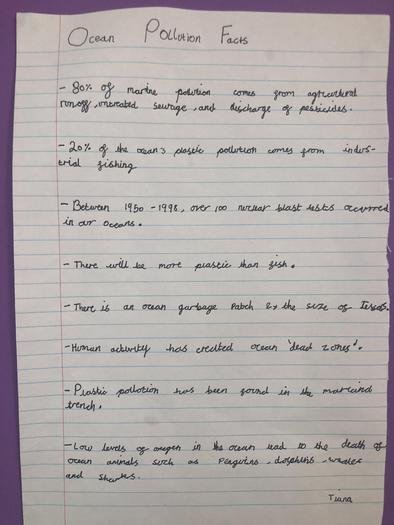 Ocean Pollution Facts
- 80% of marine pollution comes from agricultural
runoff, untreated sewage, and discharge of pesticides.
- 20% of the ocean's plastic pollution comes from indus-
trial fishing
- Between 1950 - 1998, over 100 nuclear blast tests occurred
in our oceans.
- There will be more plastic than fish.
- There is an ocean garbage patch 2x the size of Texas.
- Human activity has created ocean 'dead zones'.
- Plastic pollution has been found in the
trench.
- Low levels of oxygen in the ocean lead to the death of
ocean animals such as penguins, dolphins, whales
and sharks.
Tiana